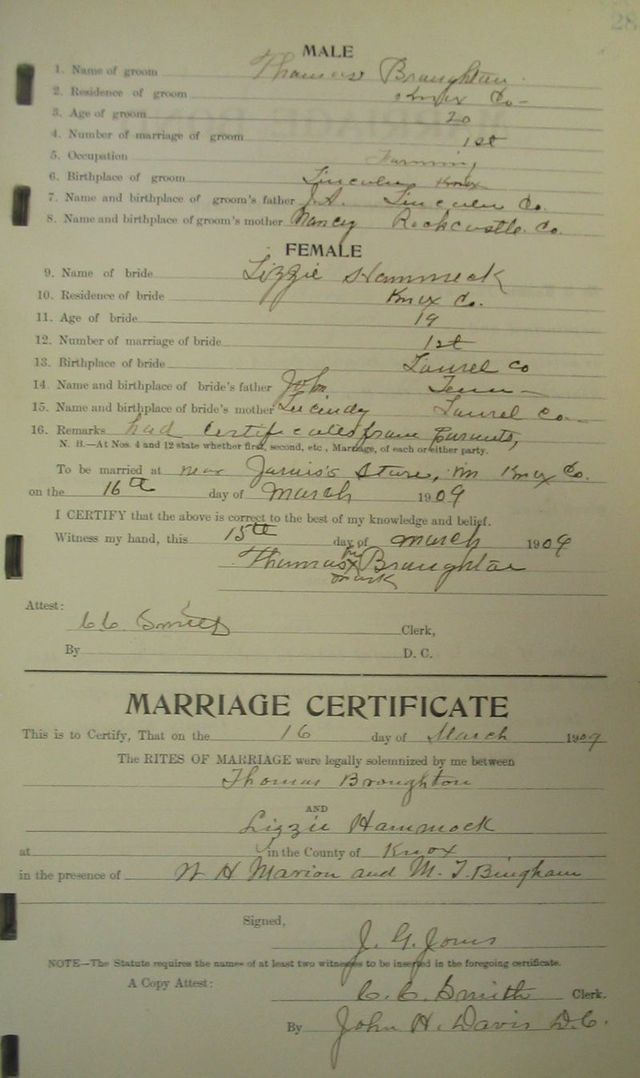 28
MALE
1. Name of groom Thomas Braughton
2. Residence of groom Knox Co-
3. Age of groom 20
4. Number of marriage of groom 1st
5. Occupation Farming
6. Birthplace of groom Lincoln Knox
7. Name and birthplace of groom's father J.A. Lincoln Co.
8. Name and birthplace of groom's mother Nancy Rockcastle Co.
FEMALE
9. Name of bride Lizzie Hammock
10. Residence of bride Knox Co.
11. Age of bride 19
12. Number of marriage of bride 1st
13. Birthplace of bride Laurel Co
14. Name and birthplace of bride's father John Tenn-
15. Name and birthplace of bride's mother Lucindy Laurel Co-
16. Remarks had certificates from Parents,
N. B.—At Nos. 4 and 12 state whether first, second, etc., Marriage, of each or either party.
To be married at near Jarvis's Store, in Knox Co.
on the 16th day of March 1909
I CERTIFY that the above is correct to the best of my knowledge and belief.
Witness my hand, this 15th day of March 1909
Thomas x Braughton
mark
Attest:
C.C. Smith Clerk,
By D. C.
MARRIAGE CERTIFICATE
This is to Certify, That on the 16 day of March 1909
The RITES OF MARRIAGE were legally solemnized by me between
Thomas Broughton
AND
Lizzie Hammock
at in the County of Knox
in the presence of W H Marion and M. T. Bingham
Signed,
J. G. Jones
NOTE—The Statute requires the names of at least two witnesses to be inserted in the foregoing certificate.
A Copy Attest: C. C. Smith Clerk.
By John H. Davis D.C.